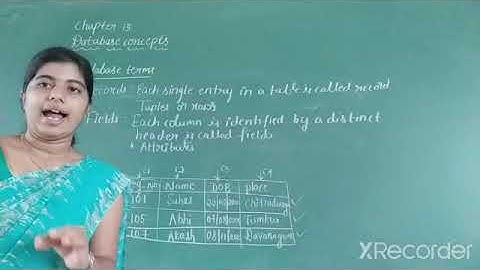 Chapter 13
Database concepts
Database terms
Records: Each single entry in a table is called record
Tuples or rows
Fields: Each column is identified by a distinct
header is called fields
* Attributes
Name DOB place
101 Suhel Chitradurga
105 Abhi Tumkur
107 Akash Davanagere
XRecorder